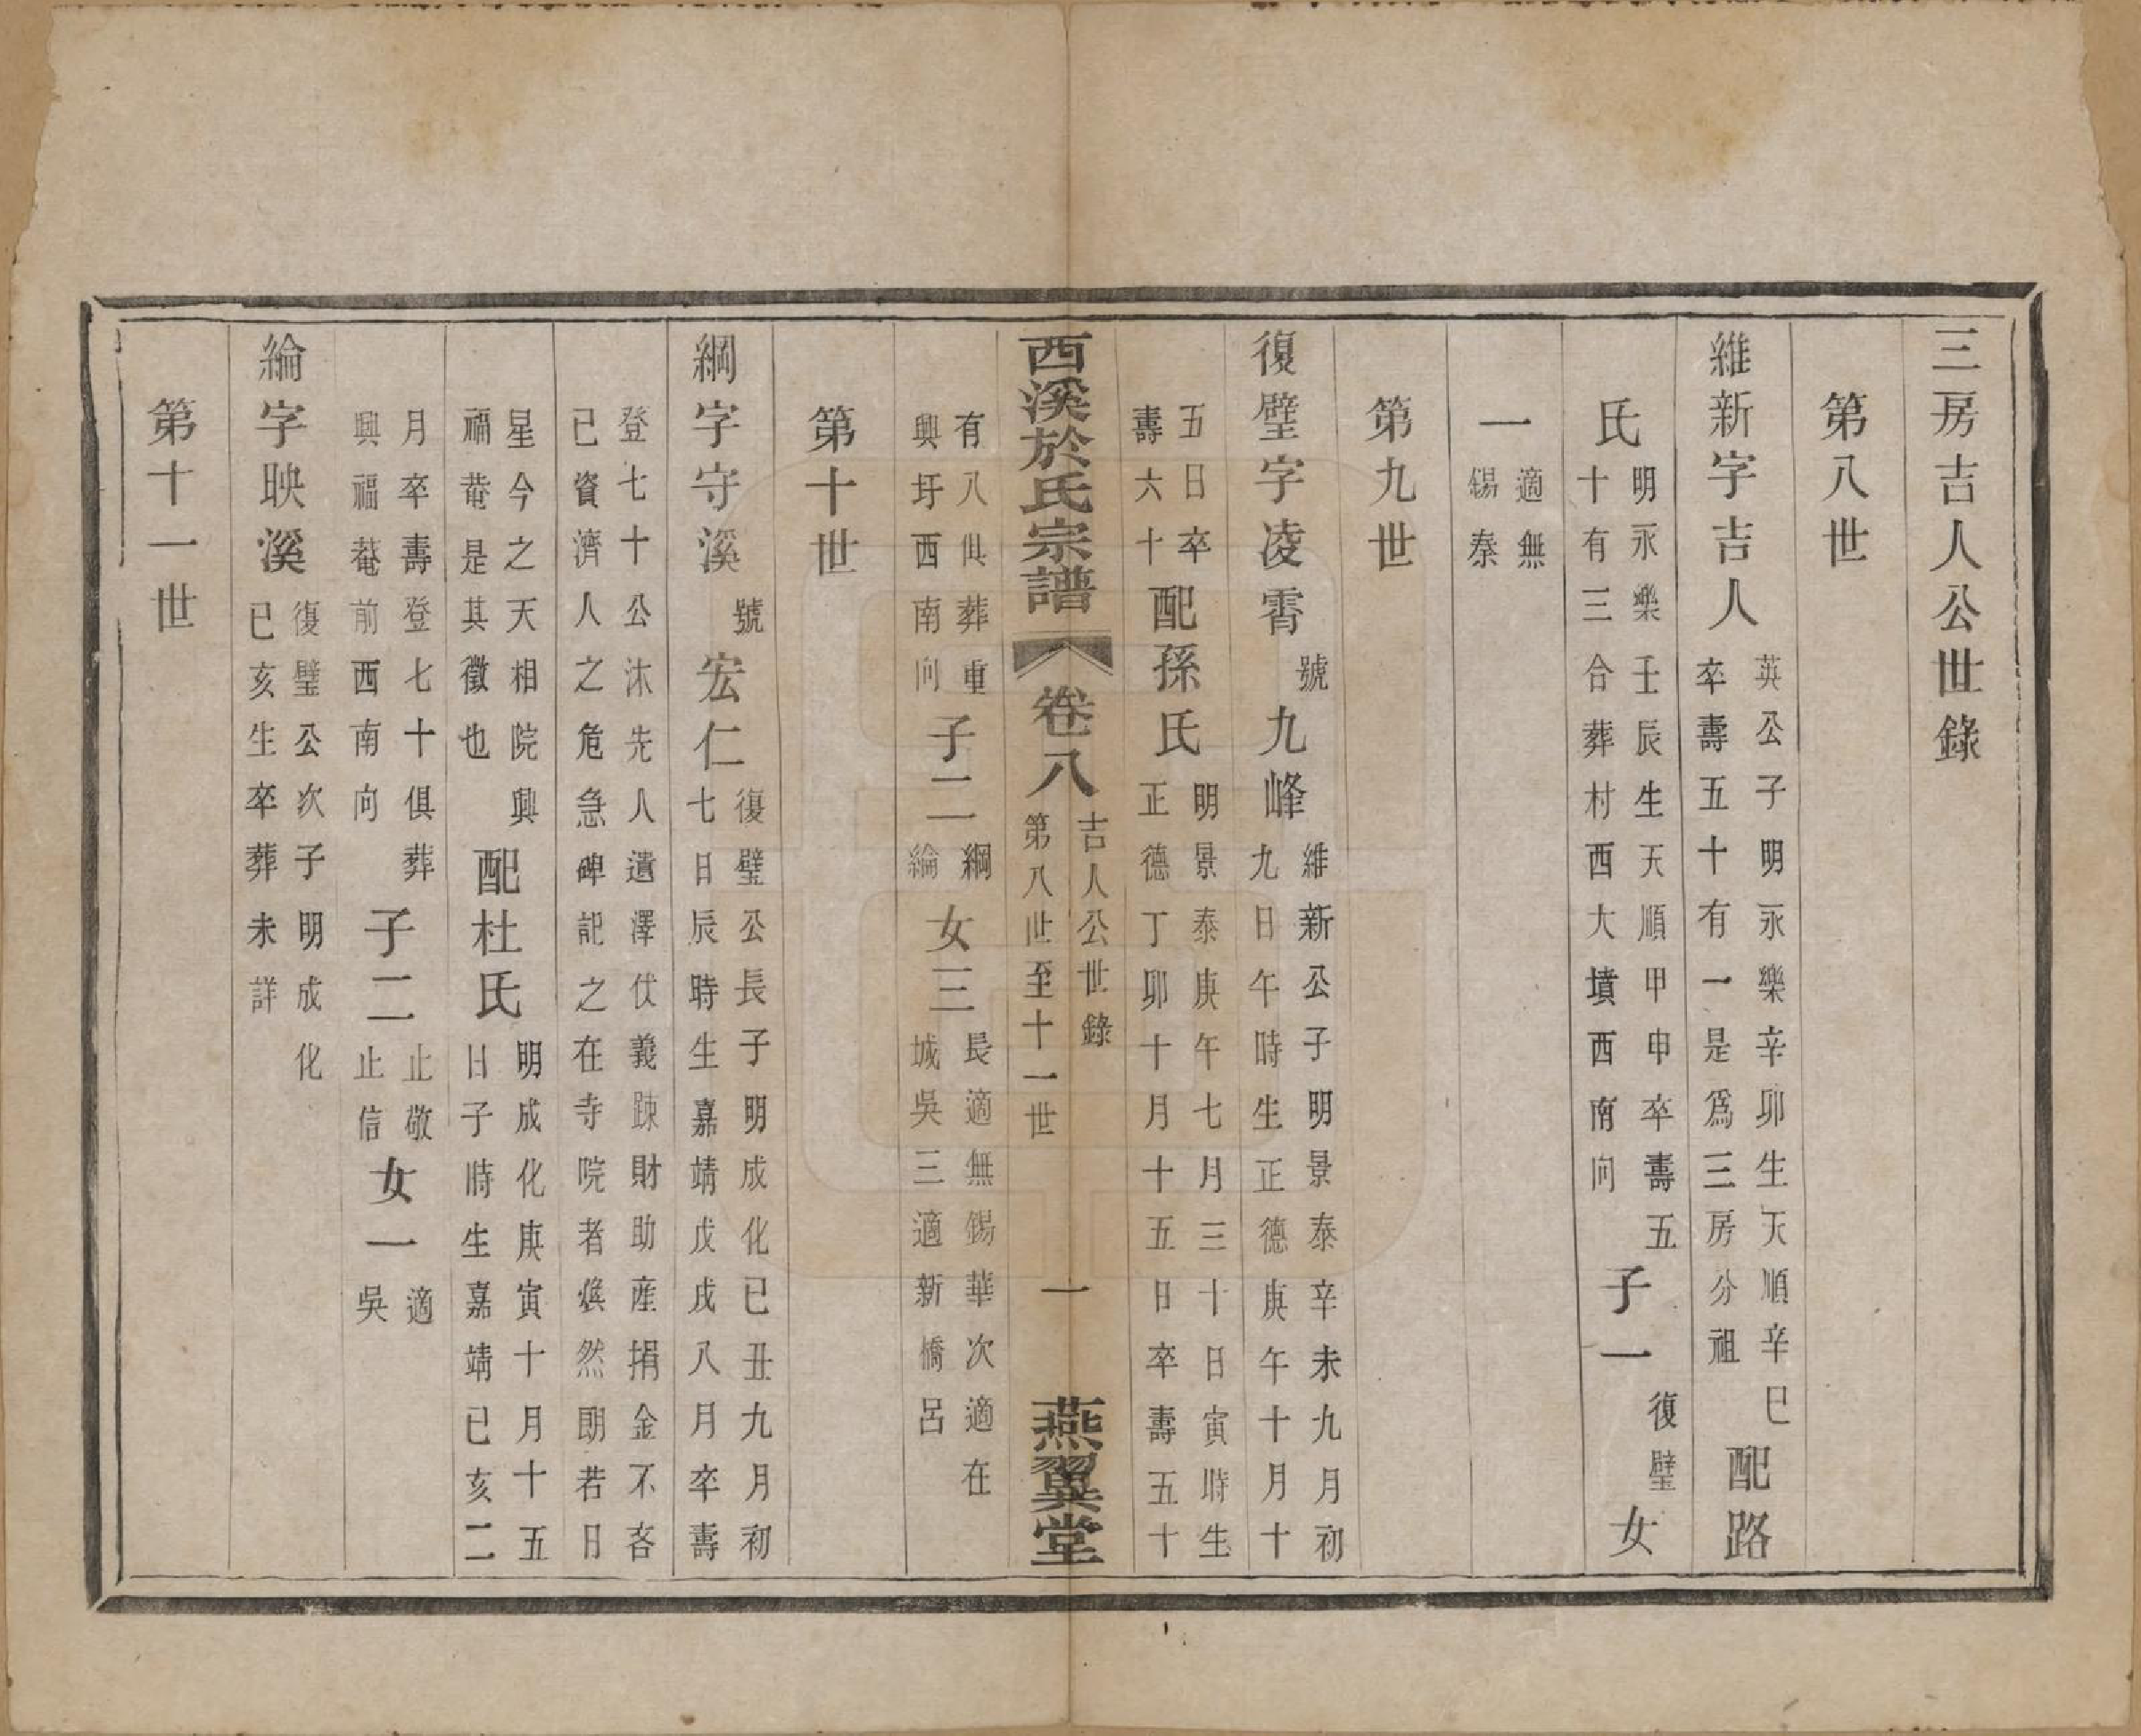 三房吉人公世錄
第八世
維新字吉人英公子明永樂辛卯生天順辛巳卒壽五十有一是爲三房分祖配路
氏明永樂壬辰生天順甲申卒壽五十有三合葬村西大墳西南向子一復璧女
一適無錫秦
第九世
復璧字凌霄號九峰維新公子明景泰辛未九月初九日午時生正德庚午十月十
五日卒壽六十配孫氏明景泰庚午七月三十日寅時生正德丁卯十月十五日卒壽五十
有八俱葬重興圩西南向子二綱綸女三長適無錫華次適在城吳三適新橋呂
第十世
綱字守溪號宏仁復璧公長子明成化已丑九月初七日辰時生嘉靖戊戌八月卒壽
登七十公沐先人遺澤伏義踈財助產捐金不吝已資濟人之危急碑記之在寺院者煥然朗若日
星今之天相院興福菴是其徵也配杜氏明成化庚寅十月十五日子時生嘉靖已亥二
月卒壽登七十俱葬興福菴前西南向子二止敬止信女一適吳
綸字映溪復璧公次子明成化已亥生卒葬未詳
第十一世
西溪於氏宗譜
卷八
吉人公世錄
第八世至十一世
一
燕翼堂